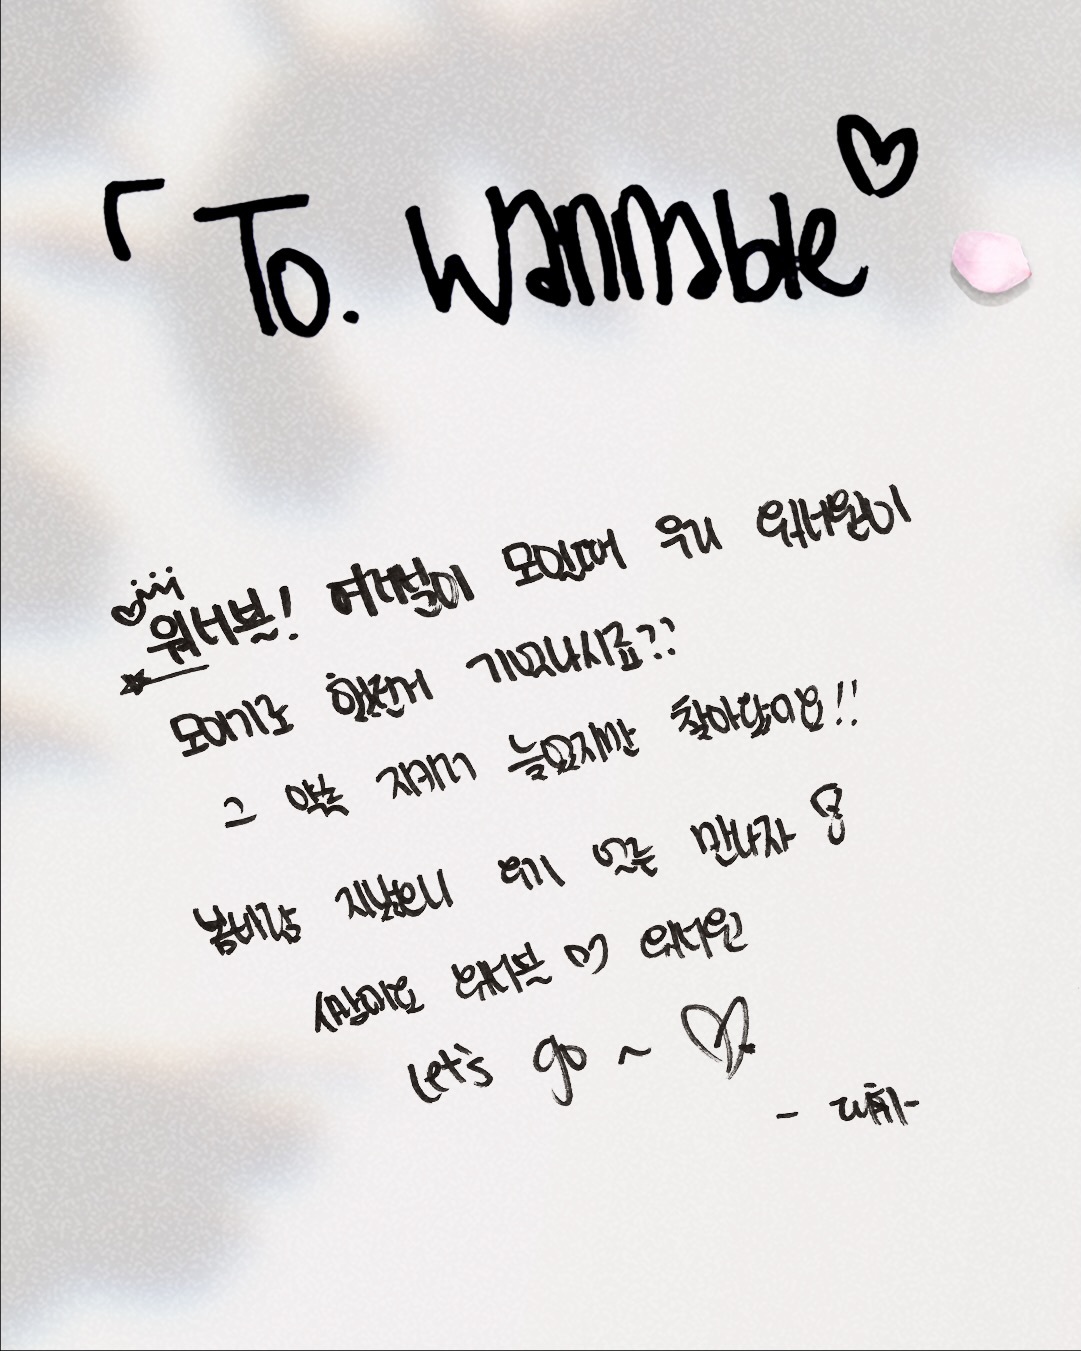 「 To. Wannable ♡
워너블! 여러분이 모일때 우리 워너원이
모이기로 했던거 기억나시죠??
그 약속 지키러 늦었지만 찾아왔어요!!
봄바람 지났으니 여기 있는 만나자
사랑해요 워너블 ♡ 워너원
Let's go ~ ♡